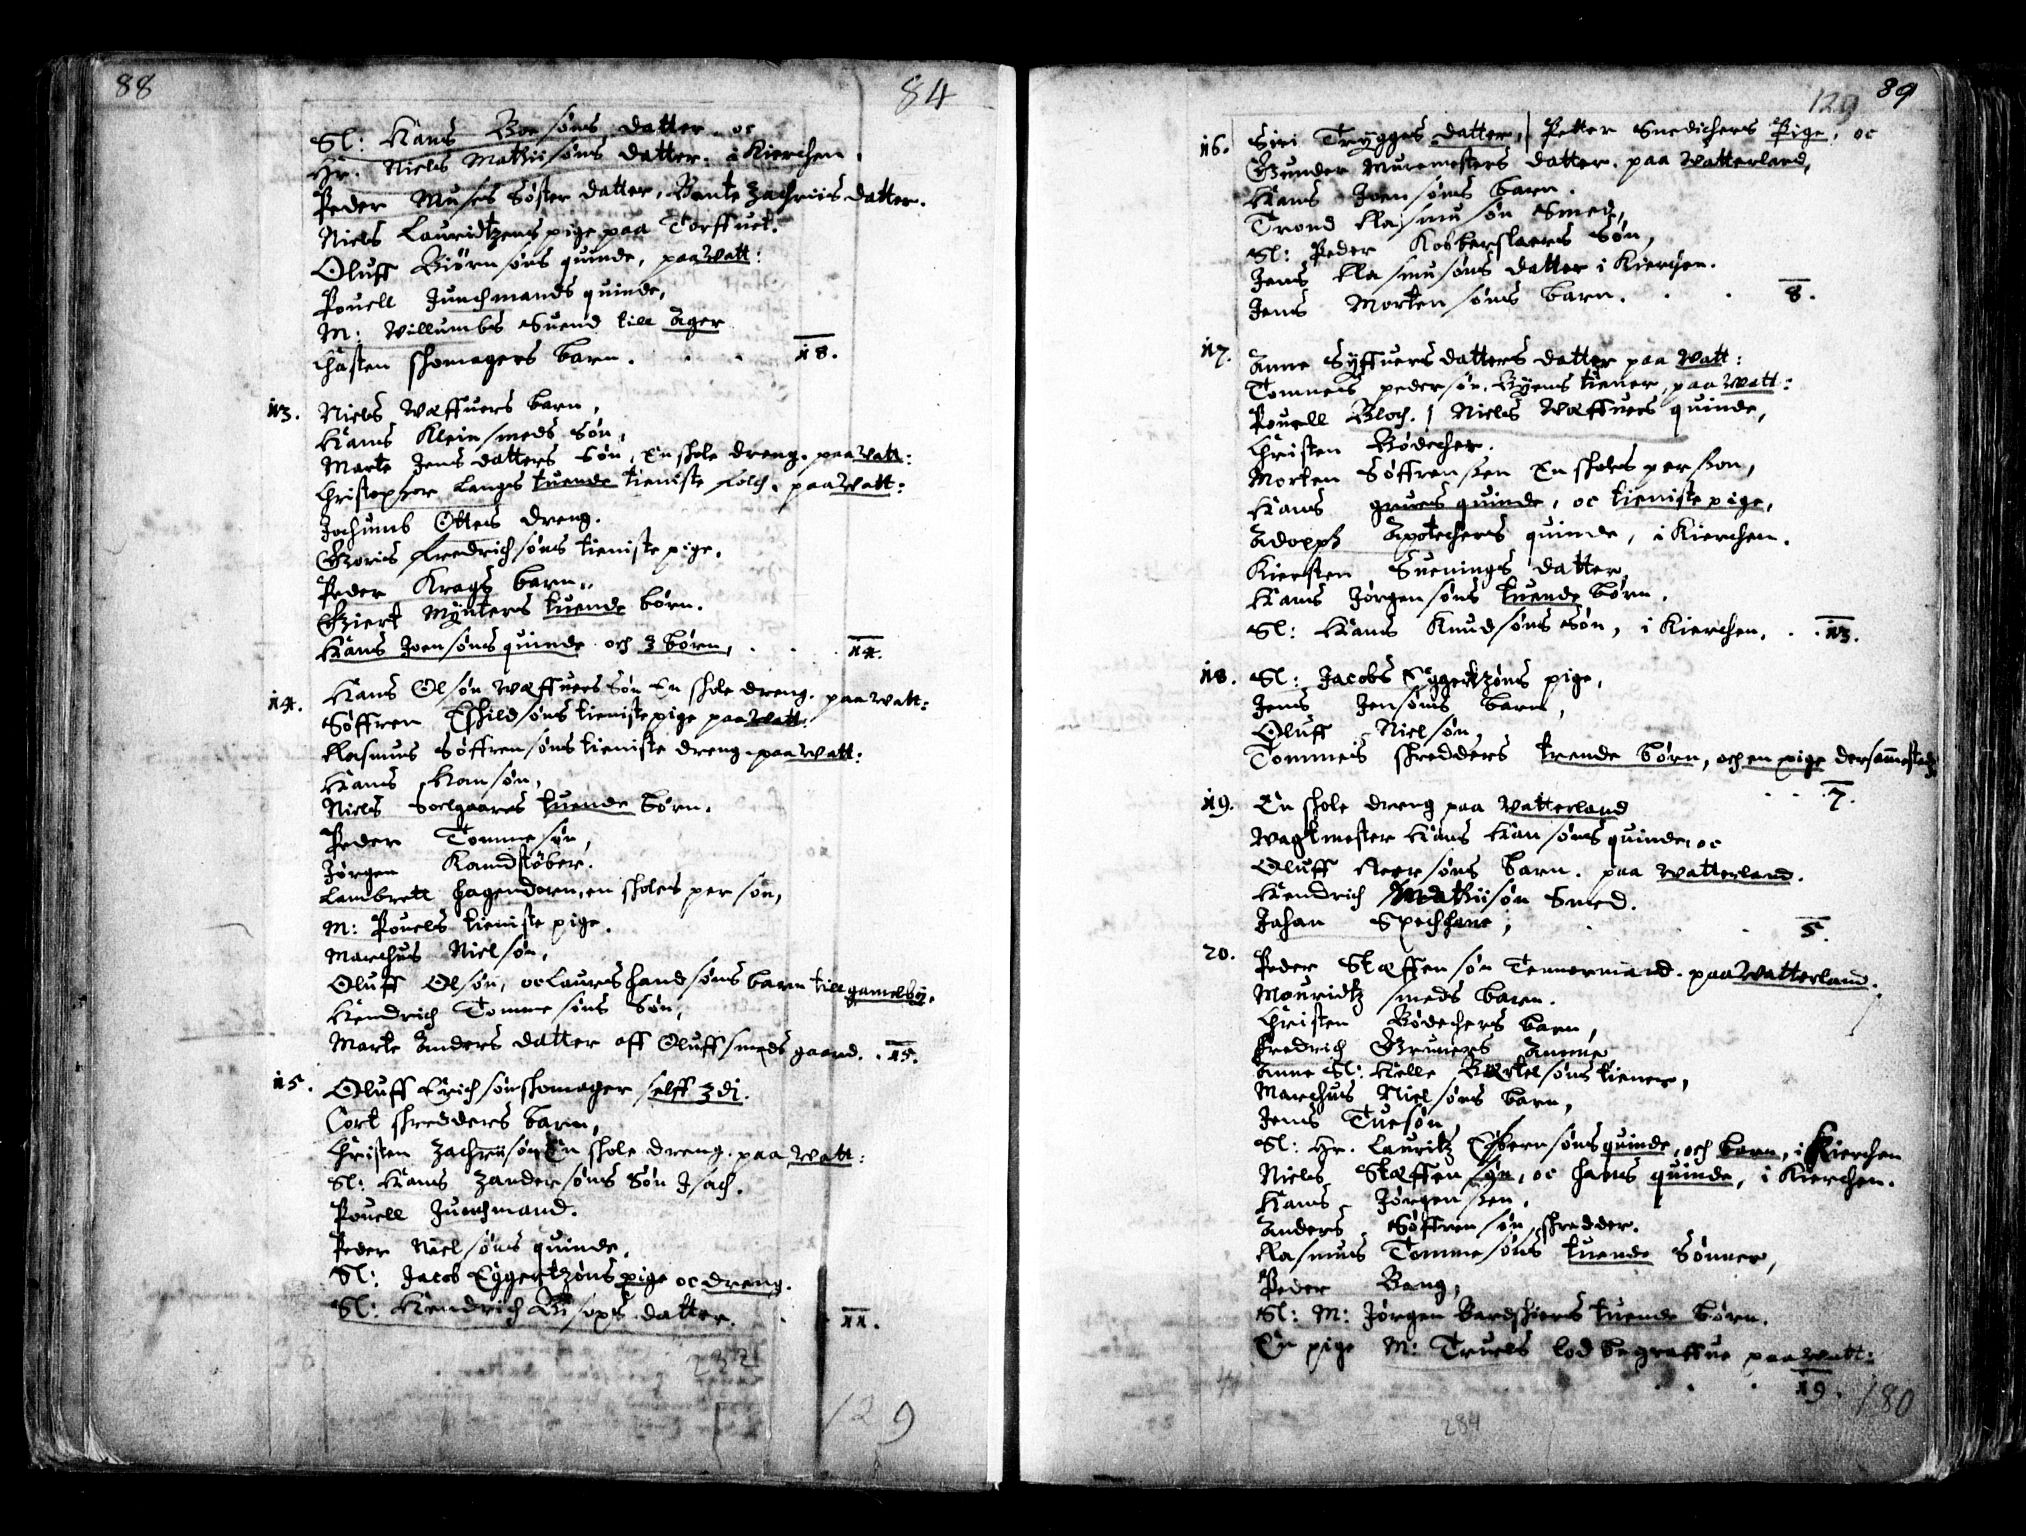 88
84
Sl: Hans Boesøns datter. oc
Hr. Niels Mathiisøns datter. i Kierchen.
Peder Muses Søster datter, Bente Zachriis datter.
Niels Lauridtzens pige paa Torffuet.
Oluff Biørnsøns quinde, paa Vatt:
Pouell Junchmands quinde,
M: Villumbs Suend till Ager
Chasten skomagers barn. . . 18.
13. Niels Væffuers barn,
Hans Kleinsmeds Søn,
Marte Jens datters Søn, En skole dreng. paa Vatt:
Christopher Langes tuende tieniste folch. paa Vatt:
Jochumb Ottes dreng.
Goris Fredrichsøns tieniste pige.
Peder Krags barn.
Giert Mynters tuende børn.
Hans Joensøns quinde och 3 børn, . . . 14.
14. Hans Olsøn Væffuers Søn En skole dreng. paa Vatt:
Søffren Eskildsøns tieniste pige paa Vatt:
Rasmus Søffrensøns tieniste dreng paa Vatt:
Hans Hansøn,
Niels Soelgaars tuende børn.
Peder Tommesøn,
Jørgen Kandstøber.
Lambrett Hagendorn, en skoles person,
M: Pouels tieniste pige.
Marchus Nielsøn,
Oluff Olsøn, oc Laures Handsøns barn till gamelby.
Hendrich Tommesøns Søn,
Marte Anders datter aff Oluff smeds gaard. . 15.
15. Oluff Erichsøn skomager selff 3di.
Cort skredders barn,
Christen Zachriisøn En skole dreng. paa Vatt:
Sl: Hans Zandersøns Søn Isach.
Pouell Junchmand.
Peder Nielsøns quinde,
Sl: Jacob Eggertzøns pige oc dreng.
Sl: Hendrich Bisops datter. . . 11.
232
129
89
129
16. Siri Trygges datter, / Petter Snedichers Pige, oc
Gunder Muremesters datter. paa Vatterland,
Hans Joensøns barn.
Trond Rasmusøn Smed,
Sl: Peder Kobberslaers Søn,
Jens Rasmusøns datter i Kierchen.
Jens Mortensøns barn. . . 8.
17. Anne Syffuers datters datter paa Vatt:
Tommeis pedersøn, Byens tiener, paa Vatt:
Pouell Bloch. / Niels Væffuers quinde,
Christen Bødecher.
Morten Søffrenssen En skoles persson,
Hans gruers quinde, oc tieniste pige,
Adolph Apotechers quinde, i Kierchen.
Kiersten Suenings datter
Hans Jørgensøns tuende børn.
Sl: Hans Knudsøns Søn, i Kierchen, . . 13.
18. Sl: Jacobs Eggertzøns pige,
Jens Jensøns barn,
Oluff Nielsøn,
Tommeis skredders trende børn, och en pige dersammestedz
. . . 7.
19. En skole dreng paa Vatterland
Vagtmester Hans Hansøns quinde, oc
Oluff Roersøns barn. paa Vatterland.
Hendrich Mathiisøn Smed.
Johan Spechhane, . . 5.
20. Peder Stæffensøn Temmermand. paa Vatterland.
Mouridtz smeds barn.
Christen Bødechers barn,
Fredrich Gruners Amme
Anne Sl: Helle Bertelsøns tiener,
Marchus Nielsøns barn,
Jens Tuesøn
Sl: Hr. Lauritz Esbernsøns quinde, och barn, i Kierchen
Niels Stæffensøn, oc hans quinde, i Kierchen.
Hans Jørgenssen,
Anders Søffrensøn skredder.
Rasmus Tommesøns tuende Sønner,
Peder Bang,
Sl: M: Jørgen Bardskiers tuende børn.
En pige M: Truels lod begraffue paa Vatt:
. . . 19. 180
284